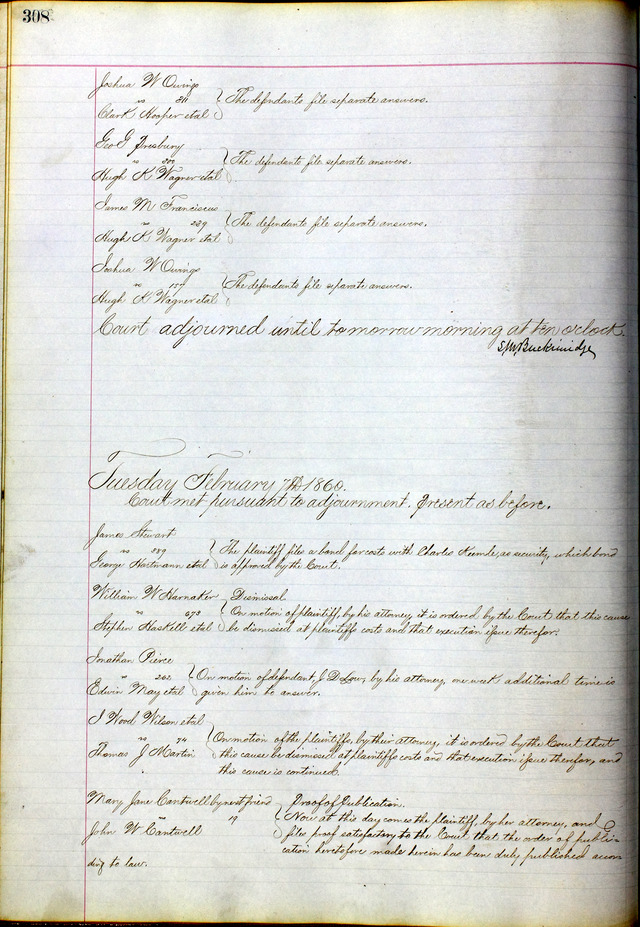 308
Joshua W Owings
vs 311 The defendants file separate answers.
Clark Hooper etal
Geo G Presbury
vs The defendants file separate answers.
Hugh K Wagner etal
James M Franciscus
vs 239 The defendants file separate answers.
Hugh K Wagner etal
Joshua W Owings
vs 157 The defendants file separate answers.
Hugh K Wagner etal
Court adjourned until tomorrow morning at ten o'clock.
S.M. Breckinridge
Tuesday February 7th 1860.
Court met pursuant to adjournment. Present as before.
James Stewart
vs 889 The plaintiff files a bond for costs with Charles Keemle, as security, which bond
George Hartmann etal is approved by the Court.
William W Harnaker Dismissal
vs 673 On motion of plaintiff, by his attorney, it is ordered by the Court that this cause
Stephen Haskell etal be dismissed at plaintiffs costs and that execution issue therefor.
Jonathan Pierce
vs 202 On motion of defendant, J D Low, by his attorney, one week additional time is
Edwin May etal given him to answer.
S Wood Wilson etal
vs 74 On motion of the plaintiffs, by their attorney, it is ordered by the Court that
Thomas J Martin this cause be dismissed at plaintiffs costs and that execution issue therefor, and
this cause is continued.
Mary Jane Cantwell by next friend Proof of Publication.
vs 19 Now at this day comes the plaintiff, by her attorney, and
John W Cantwell files proof satisfactory to the Court that the order of publi-
cation heretofore made herein has been duly published accor
ding to law.